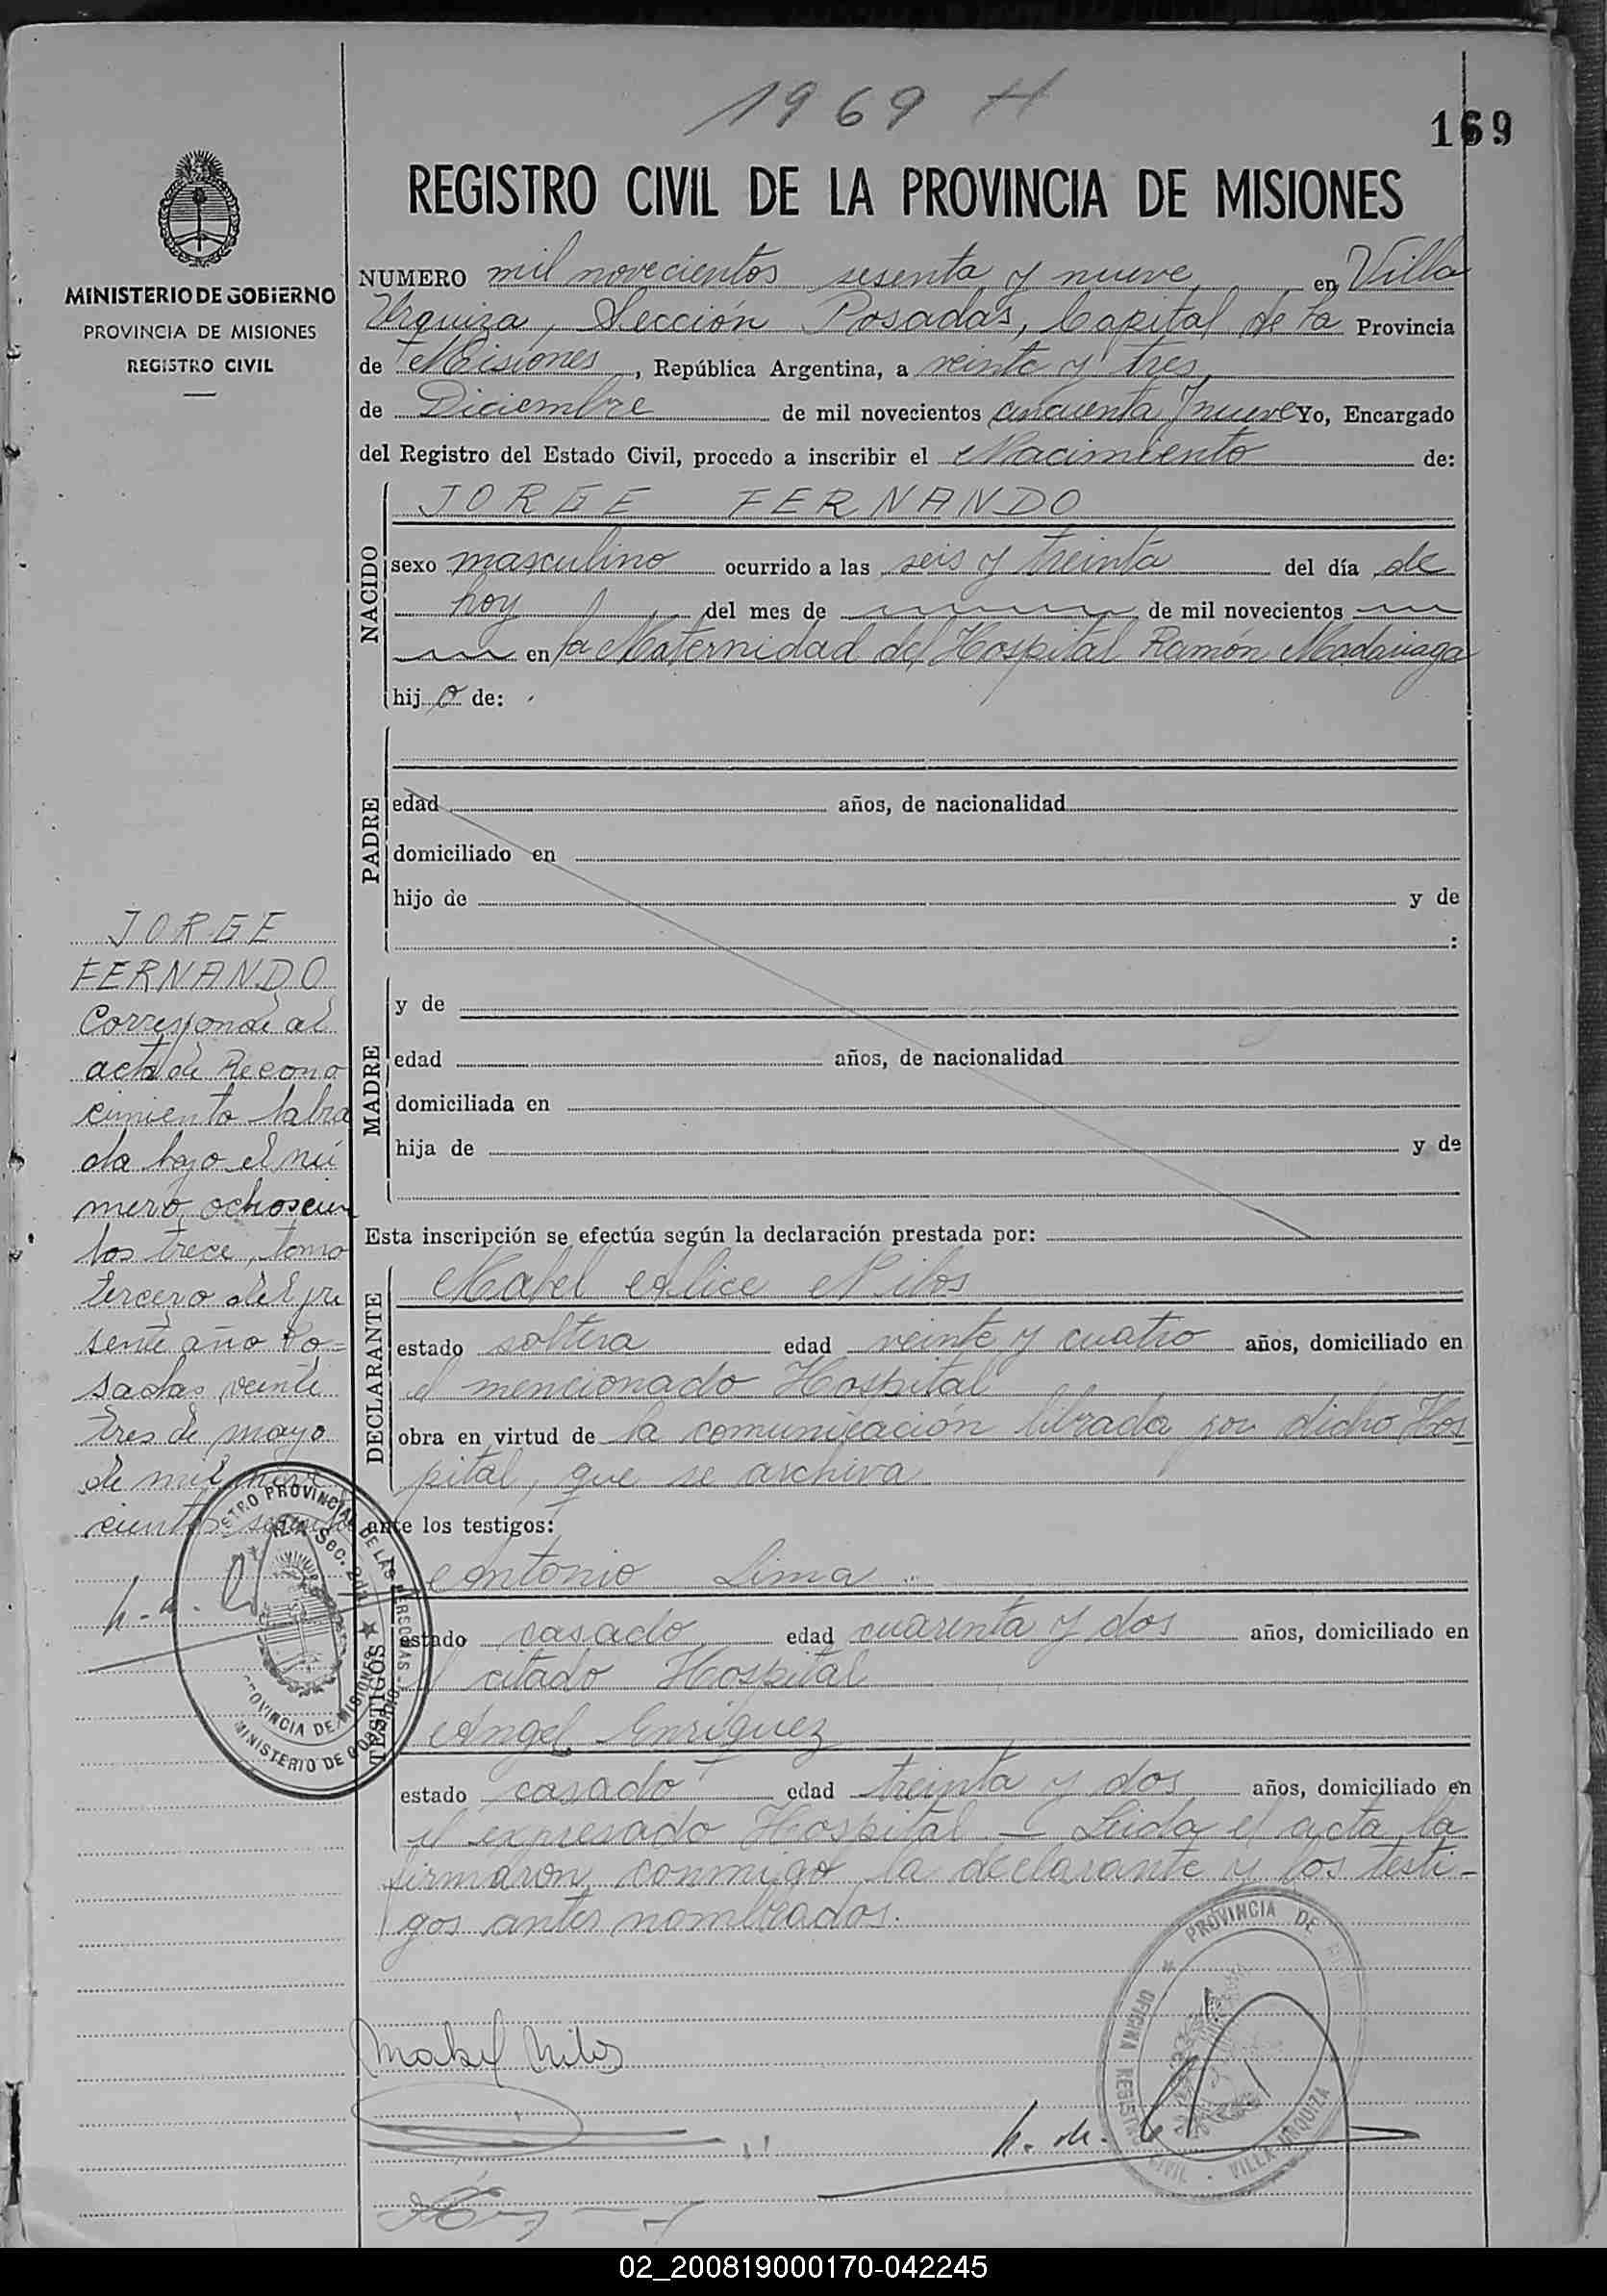 1969 H
169
REGISTRO CIVIL DE LA PROVINCIA DE MISIONES
MINISTERIO DE GOBIERNO
PROVINCIA DE MISIONES
REGISTRO CIVIL
NUMERO mil novecientos sesenta y nueve, en Villa
Urquiza, Sección Posadas, Capital de la Provincia
de Misiones, República Argentina, a veinte y tres,
de Diciembre de mil novecientos cincuenta y nueve Yo, Encargado
del Registro del Estado Civil, procedo a inscribir el Nacimiento de:
NACIDO
JORGE FERNANDO
sexo masculino ocurrido a las seis y treinta del día de
hoy, del mes de de mil novecientos
en la Maternidad del Hospital Ramón Madariaga
hijo de:
PADRE
edad años, de nacionalidad
domiciliado en
hijo de y de
:
MADRE
y de
edad años, de nacionalidad
domiciliada en
hija de y de
Esta inscripción se efectúa según la declaración prestada por:
DECLARANTE
Mabel Alice Nilos
estado soltera edad veinte y cuatro años, domiciliado en
el mencionado Hospital
obra en virtud de la comunicación librada por dicho Hos
pital, que se archiva
ante los testigos:
TESTIGOS
Antonio Lima
estado casado, edad cuarenta y dos años, domiciliado en
el citado Hospital
Angel Enriquez
estado casado edad treinta y dos años, domiciliado en
el expresado Hospital. — Leida el acta, la
firmaron conmigo la declarante y los testi-
gos antes nombrados.
JORGE
FERNANDO
Corresponde al
acta de Recono
cimiento labra
da bajo el nú
mero ochoscien
tos trece, tomo
tercero del pre
sente año Po=
sadas, veinte
tres de mayo
de mil nove
cientos
PROVINCIAL DE LAS PERSONAS
Sec.
PROVINCIA DE MISIONES
MINISTERIO DE GOBIERNO
Mabel Nilos
PROVINCIA DE
OFICINA REGISTRO CIVIL - VILLA URQUIZA
02_200819000170-042245